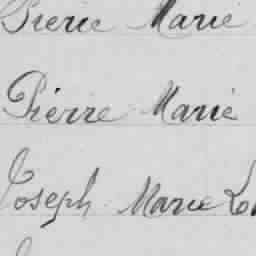 Pierre Marie
Pierre Marie
Joseph Marie